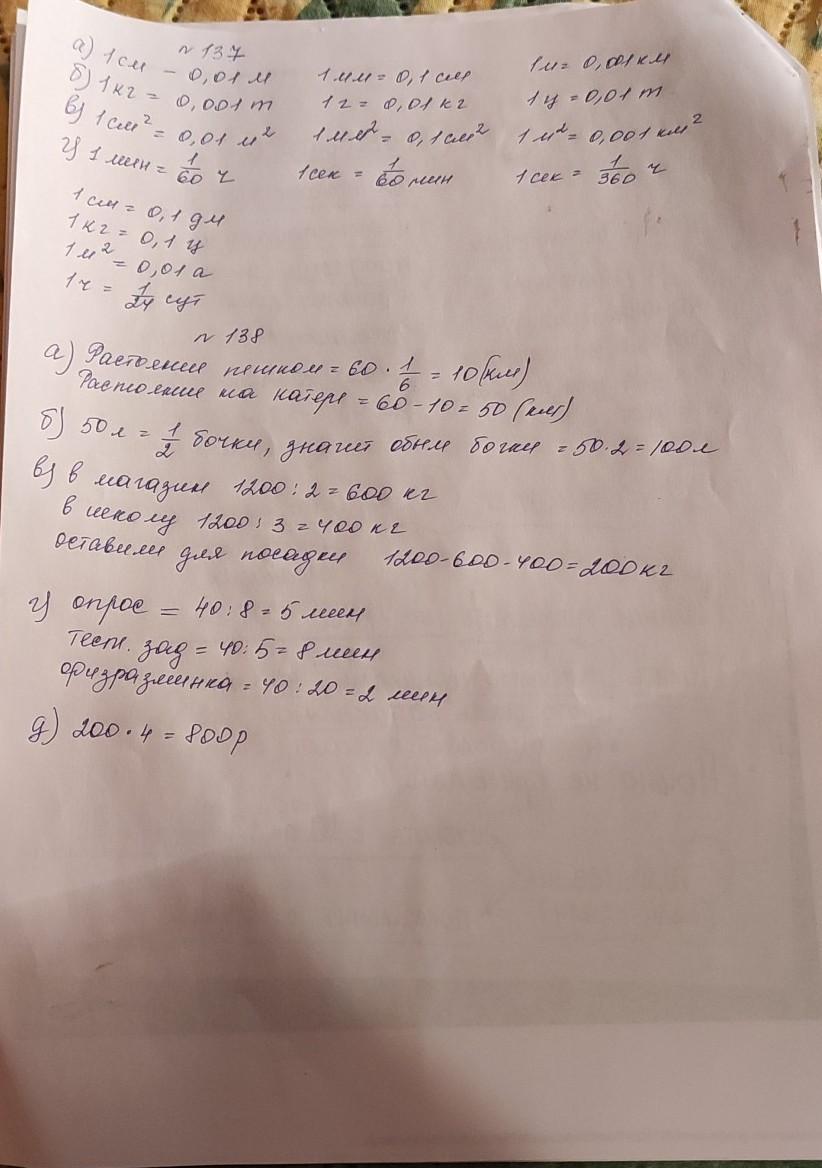 № 137
а) 1 см - 0,01 м 1 мм = 0,1 см 1 м = 0,001 км
б) 1 кг = 0,001 т 1 г = 0,01 кг 1 ц = 0,01 т
в) 1 см² = 0,01 м² 1 мм² = 0,1 см² 1 м² = 0,001 км²
г) 1 мин = 1/60 ч 1 сек = 1/60 мин 1 сек = 1/360 ч
1 см = 0,1 дм
1 кг = 0,1 ц
1 м² = 0,01 а
1 ч = 1/24 сут
№ 138
а) Растояние пешком = 60 · 1/6 = 10 (км)
Растояние на катере = 60 - 10 = 50 (км)
б) 50 л = 1/2 бочки, значит объм бочки = 50·2 = 100 л
в) в магазин 1200 : 2 = 600 кг
в школу 1200 : 3 = 400 кг
оставили для посадки 1200-600-400=200 кг
г) опрос = 40 : 8 = 5 мин
тест. зад = 40 : 5 = 8 мин
физразминка = 40 : 20 = 2 мин
д) 200 · 4 = 800 р